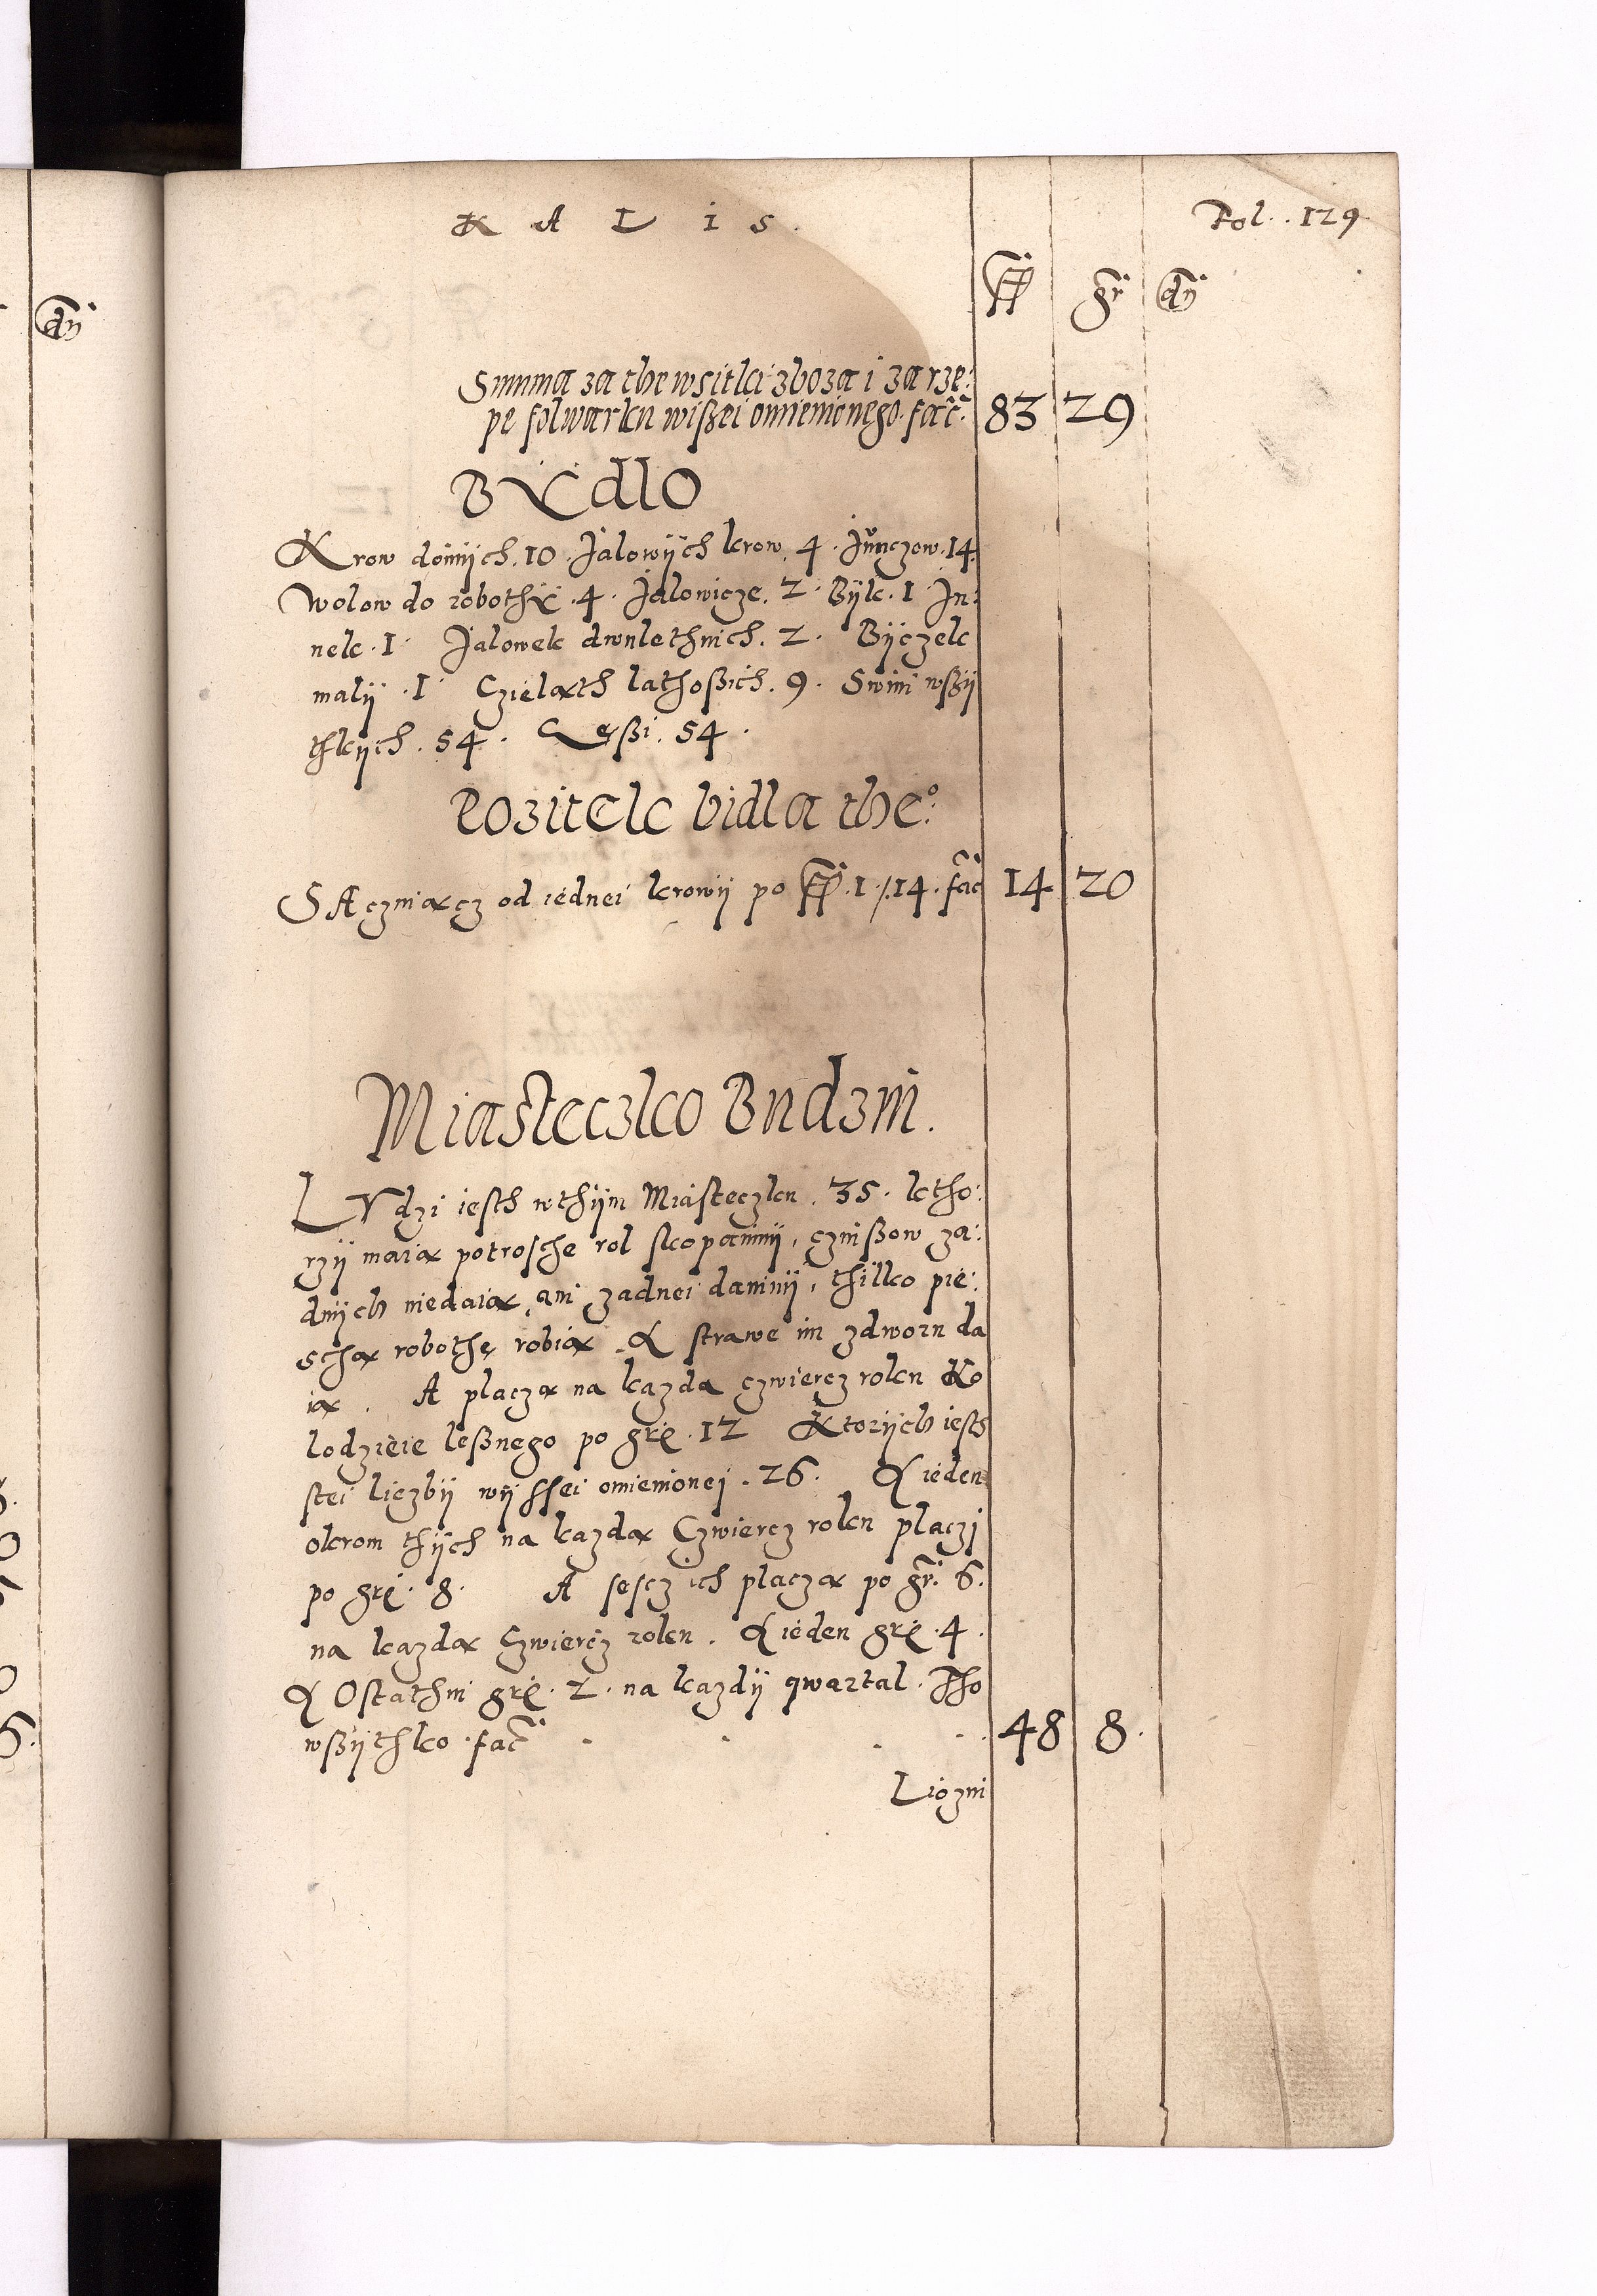 K A L i S.
Fol. 129
ff gr dn
dn
Summa za the wsitki zboza i za rze:
pe folwarku wißei omienionego. fac̃. 83 29
BYdlO
Krow doinijch. 10. Jalowijch krow. 4. Junczow. 14.
Wolow do robothÿ. 4. Jalowicze. 2. Bijk. 1 Ju:
nek. 1 Jalowek dwulethnich. 2. Bijczelc
malij. 1 Czieląth lathoßich. 9. Swini wßij
thkijch. 54. Gęßi. 54.
Pozitek bidla theo:
SAczniącz od iednei krowij po ff. 1 /. 14. fac 14 20
Miasteczko Budzin.
LVdzi iesth wthijm Miasteczku. 35. ktho:
rzij maią potrosche rol skopaninij, czinßow za:
dnijch niedaią, ani zadnei daninij, thilko pie:
schą robothę robią. & strawe im zdworu da
ią. A placzą na kazda czwiercz roku Ko
lodzieie leßnego po grę. 12 Ktorijch iesth
stei liczbij wijssei omienionej. 26. & ieden
okrom thijch na kazdą Czwiercz roku placzi
po grę. 8. A sescz ich placzą po gr. 6.
na kazdą Czwiercz roku. & ieden grę. 4.
& Ostathni grę. 2. na kazdij qwartal. Tho
wßijthko. fac̃ 48 8.
Liczni